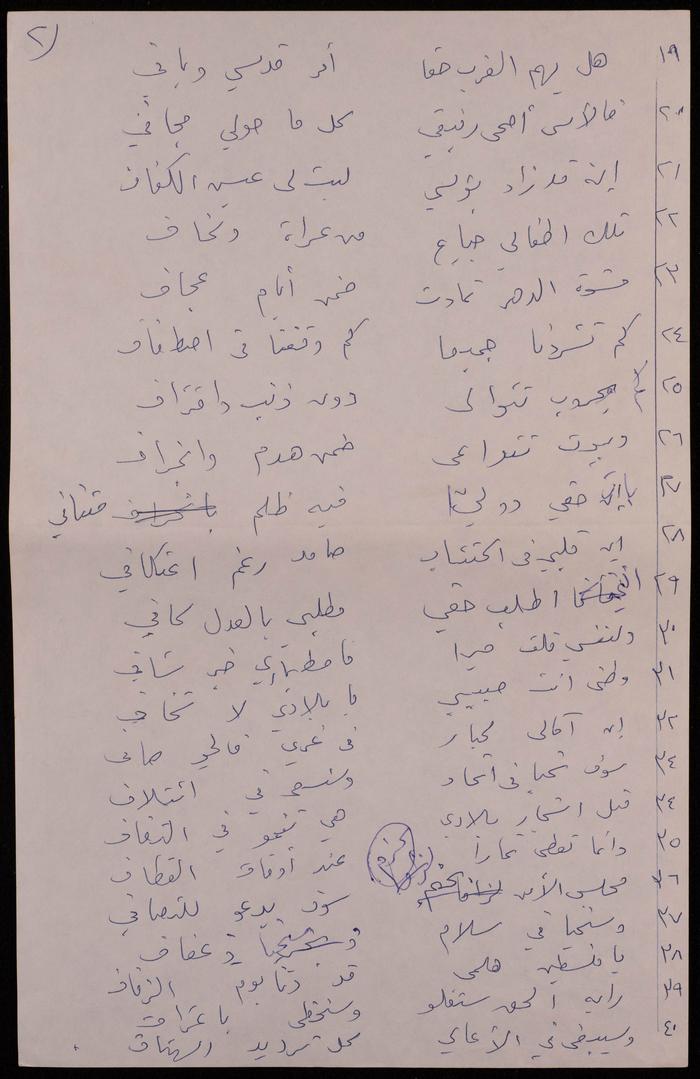 ٢
١٩ هل يهم الغرب حقا أمر قدسي وباقي
٢٠ فالأسى أضحى رفيقي كل ما حولي مجافي
٢١ إنه قد زاد بؤسي ليت لى عيش الكفاف
٢٢ تلك اطفالي جياع من عراة وتخاف
٢٣ قسوة الدهر تمادت ضمن أيام عجاف
٢٤ كم تشردنا جميعا كم وقفنا في اصطفاف
٢٥ كم حروب تتوالى دون ذنب واقتراف
٢٦ وبيوت تتداعى ضمن هدم وانجراف
٢٧ حقي دوليا فيه ظلم
٢٨ إن قلبي في اكتئاب صامد رغم اعتكافي
٢٩ اطلب حقي مطلبي بالعدل كافي
٣٠ ولنفسي قلت صبرا فاصطباري خير شافي
٣١ وطني أنت حبيبي يا بلادي لا تخافي
٣٢ إن آمالى كبار في غدي فالجو صافى
٣٤ سوف نحيا في اتحاد وسنسعى في ائتلاف
٣٤ مثل اشجار بلادي هي تنمو في التفاف
٣٥ دائما تعطى ثمارا عند أوقات القطاف
٣٦ مجلس الأمن سوف يدعو للتصافي
٣٧ وسنحيا في سلام في عفاف
٣٨ يا فلسطين هلمى قد دنا يوم الزفاف
٣٩ راية الحق ستعلو وسنحظى باعتراف
٤٠ وسيبقى في الأعالي كل ترديد الهتاف